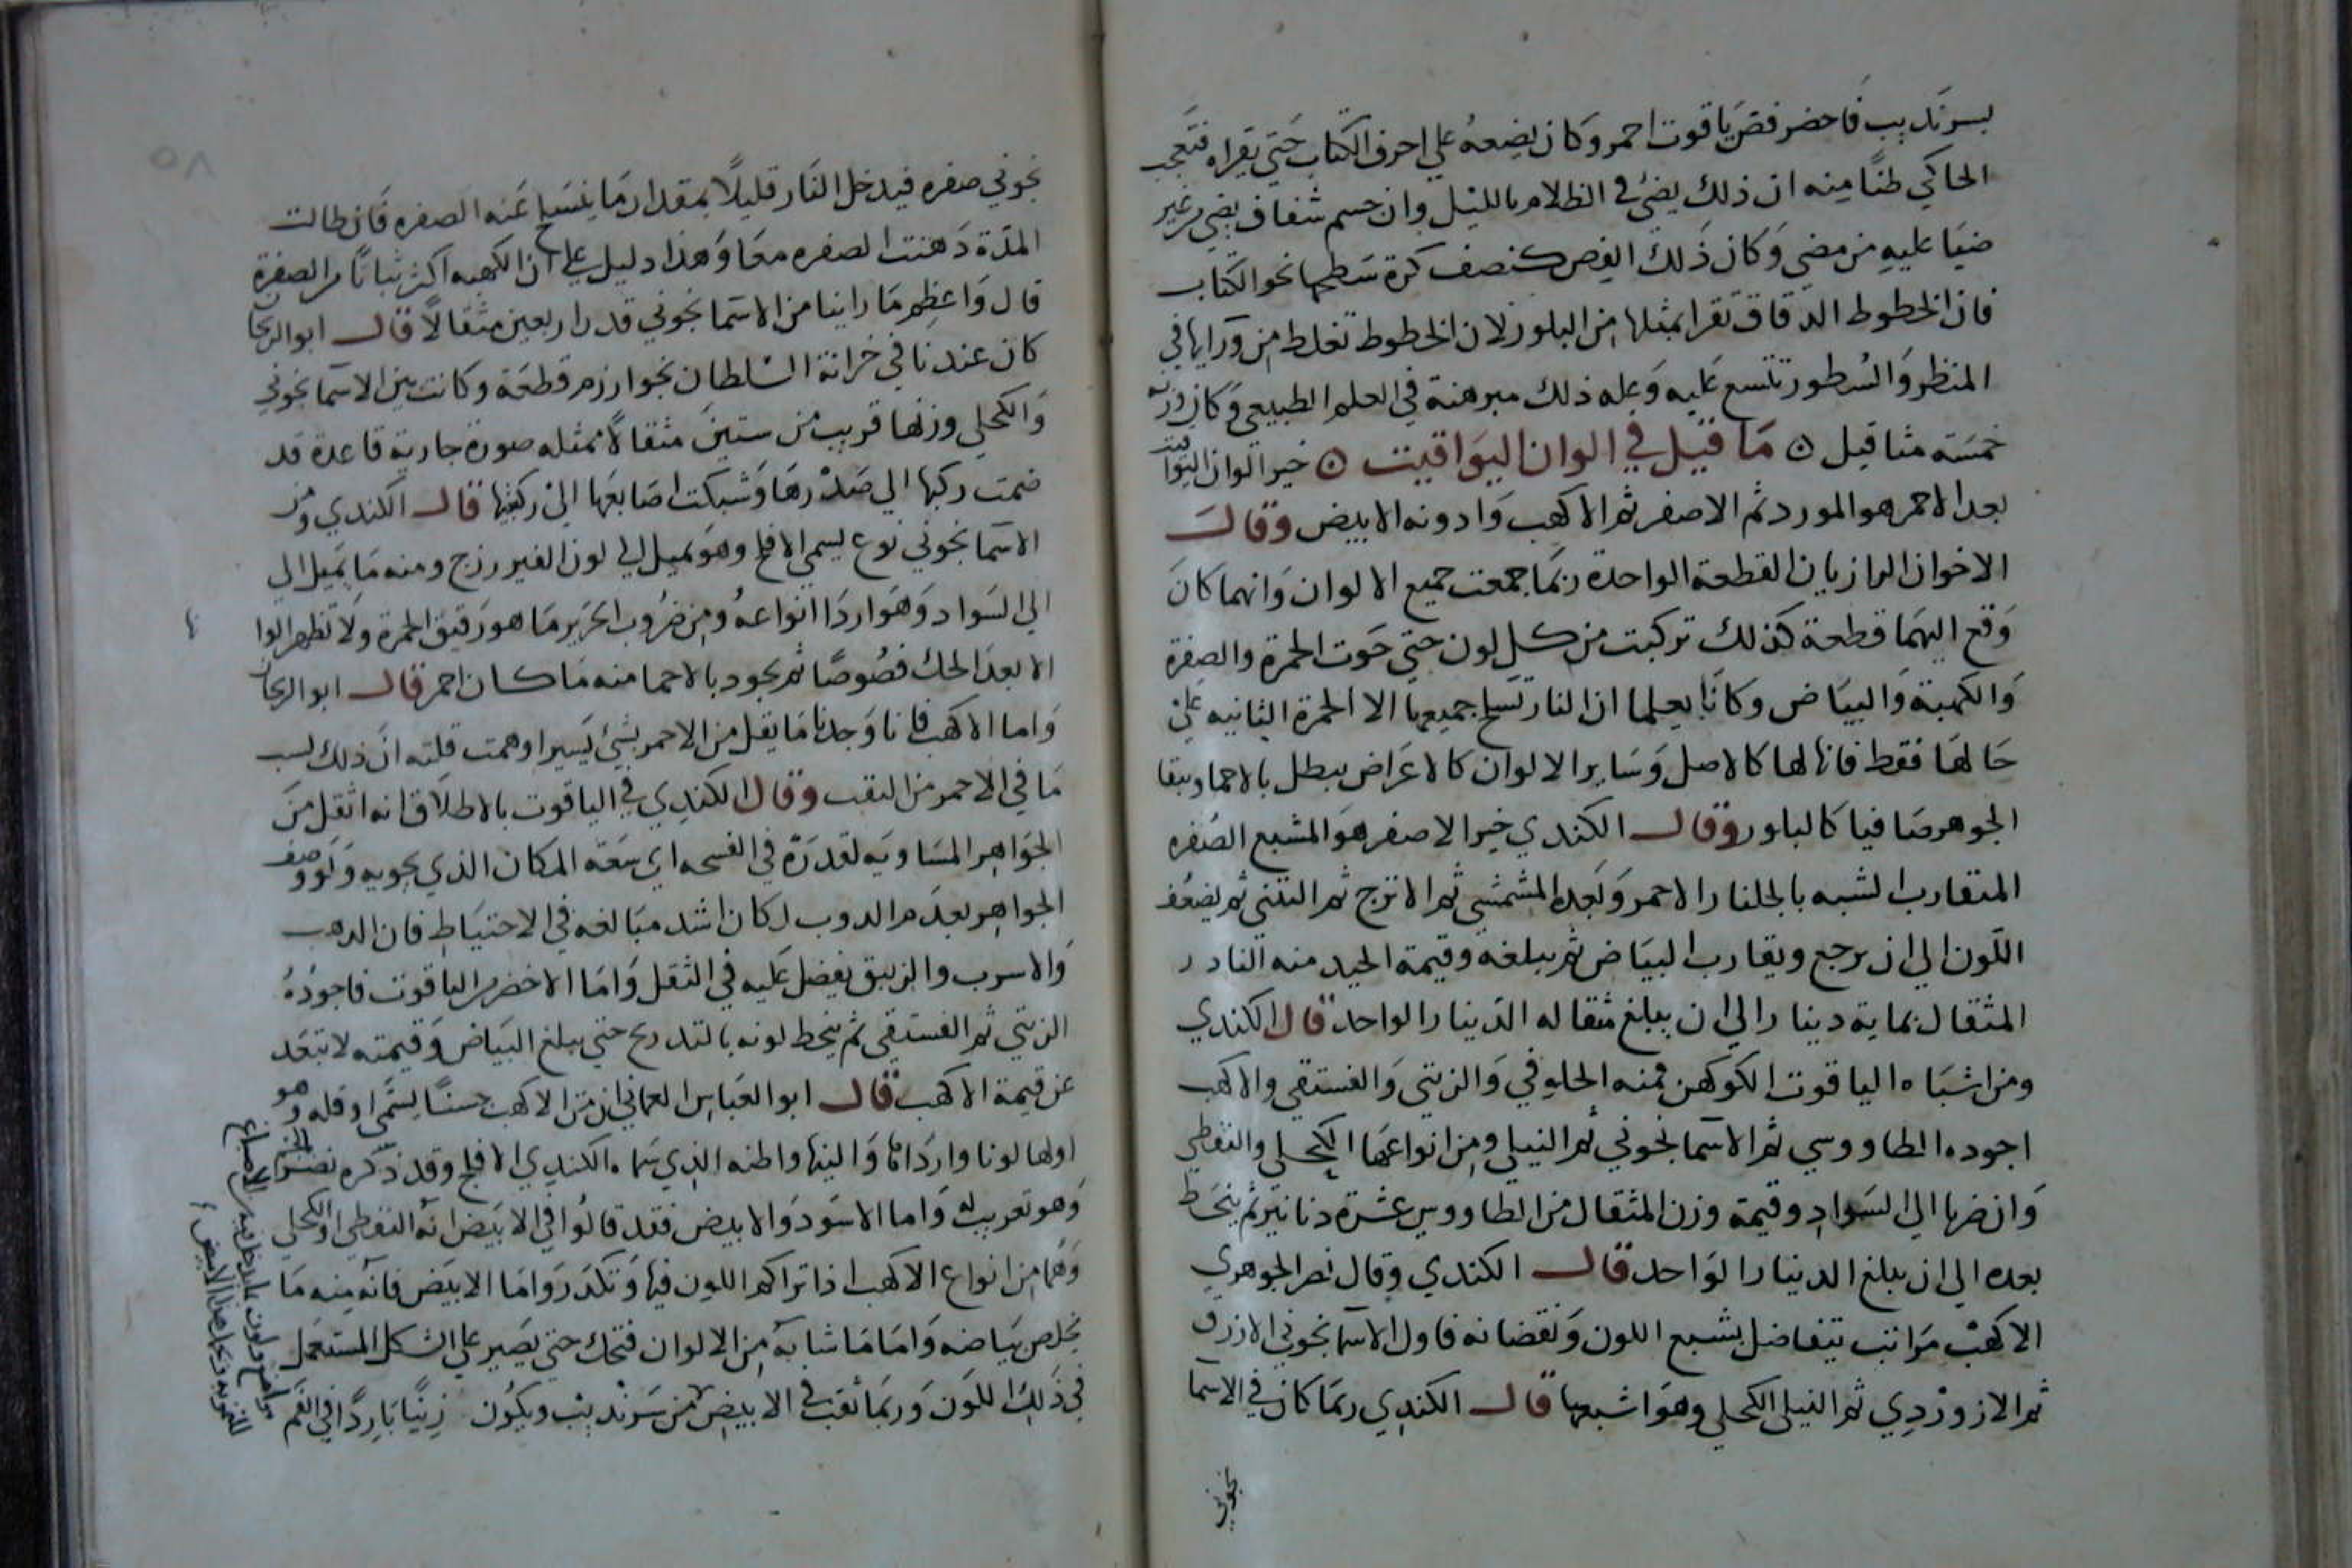 بسرنديب فاحضر فص ياقوت احمر وكان يضعه على احرف الكتاب حتى يقراه فتعجب
الحاكي ظنًا منه ان ذلك يضئ في الظلام بالليل وان جسم شفاف يضي من غير
ضيا عليه من مضي وكان ذلك الفص كنصف كرة سطحها نحو الكتاب
فان الخطوط الدقاق تقرا بمثلها من البلور لان الخطوط تغلظ من ورايها في
المنظر والسطور تتسع عليه وعلة ذلك مبرهنة في العلم الطبيعي وكان وزنه
خمسة مثاقيل ۞ ما قيل في الوان اليواقيت ۞ خير الوان اليواقيت
بعد الاحمر هو المورد ثم الاصفر ثم الاكهب وادونه الابيض وقال
الاخوان الرازيان القطعة الواحدة ربما جمعت جميع الالوان وانهما كان
وقع اليهما قطعة كذلك تركبت من كل لون حتى حوت الحمرة والصفرة
والكهبة والبياض وكانا يعلما ان النار تسلخ جميعها الا الحمرة الثانيه على
حالها فقط فانها لها كالاصل وساير الالوان كالاعراض يبطل بالاحما ويبقا
الجوهر صافيا كالبلور وقال الكندي خير الاصفر هو المشبع الصفره
المتقارب الشبه بالجلنار الاحمر وبعده المشمشي ثم الاترج ثم التبني ثم يضعف
اللون الى ان يرجع ويقارب البياض ثم يبلغه وقيمة الجيد منه النادر
المثقال بماية دينار الى ان يبلغ مثقاله الدينار الواحد قال الكندي
ومن اشباه الياقوت الكوكهن فمنه الحلوقي والزيتي والفستقي والاكهب
اجوده الطاووسي ثم الاسمانجوني ثم النيلي ومن انواعها الكحلي والنفطي
وان ضربا الى السواد وقيمة وزن المثقال من الطاووس عشرة دنانير ثم ينحط
بعده الى ان يبلغ الدينار الواحد قال الكندي وقال نصر الجوهري
الاكهب مراتب يتفاضل بشبع اللون ونقصانه فاول الاسمانجوني الازرق
ثم الازوردي ثم النيلي الكحلي وهو اشبعها قال الكندي ربما كان في الاسما
نجوني
٥٨
نجوني صفره فيدخل النار قليلًا بمقدار ما ينسلخ عنه الصفره فان طالت
المدة ذهبت الصفره معا وهذا دليل على ان الكهبه اكثر ثباتا من الصفرة
قال واعظم ما راينا من الاسمانجوني قدر اربعين مثقالًا قال ابو الريحان
كان عندنا في خزانة السلطان بخوارزم قطعة وكانت بين الاسمانجوني
والكحلي وزنها قريب من ستين مثقالًا ممثله صورة جارية قاعدة قد
ضمت ركبها الى صدرها وشبكت اصابعها الى ركبتها قال الكندي ومن
الاسمانجوني نوع يسمى الافلح وهو يميل الى لون الفيروزج ومنه ما يميل الى
الى السواد وهو اردا انواعه ومن ضروب الحرير ما هو رقيق الحمرة ولا تظهر الوا
الا بعد الحك فصوصًا ثم يجود بالاحما منه ما كان احمر قال ابو الريحان
واما الاكهب فانا وجدنا ما يقل من الاحمر بشئ يسير اوهمت قلته ان ذلك لسبب
ما في الاحمر من الثقب وقال الكندي في الياقوت بالاطلاق انه اثقل من
الجواهر المساويه لقدره في الفسحه اي سعة المكان الذي يحويه ولو وصف
الجواهر بعدم الدوب لكان اشد مبالغه في الاحتياط فان الدهب
والاسرب والزيبق يفضل عليه في الثقل واما الاخضر من الياقوت فاجوده
الزيتي ثم الفستقي ثم ينحط لونه بالتدريج حتى يبلغ البياض وقيمته لا تبعد
عن قيمة الاكهب قال ابو العباس العماني ان من الاكهب جنسًا يسمى اوقله وهو
اولها لونا واردانا والينها واظنه الذي سماه الكندي الافلح وقد ذكره نصر
وهو تعريب له واما الاسود والابيض فقد قالوا في الابيض انه النفطي او الكحلي
وهما من انواع الاكهب اذا تراكم اللون فيها وتكدر واما الابيض فانه منه ما
يخلص بياضه واما ما شابه من الالوان فتحك حتى يصير على الشكل المستعمل
في ذلك اللون وربما نقب في الابيض من سرنديب ويكون رزينًا باردًا في الفم